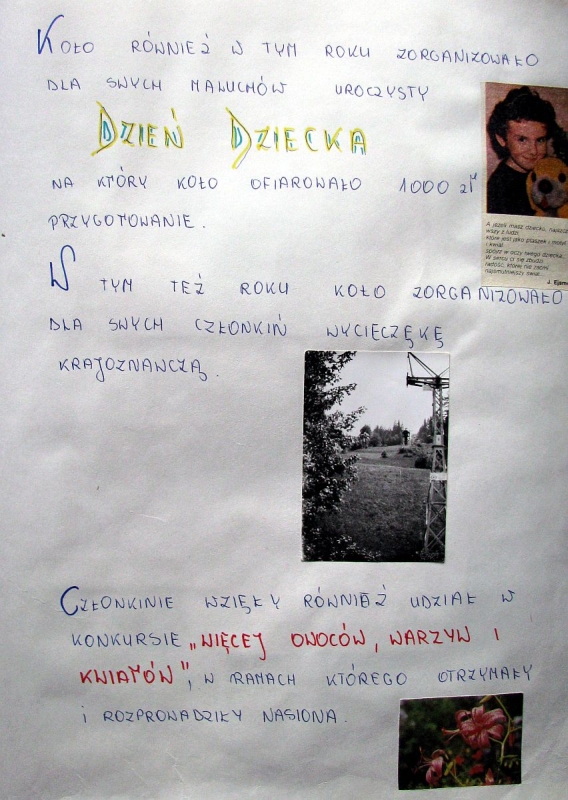 KOŁO RÓWNIEŻ W TYM ROKU ZORGANIZOWAŁO
DLA SWYCH MALUCHÓW UROCZYSTY
DZIEŃ DZIECKA
NA KTÓRY KOŁO OFIAROWAŁO 1000 zł
PRZYGOTOWANIE.
A jeżeli masz dziecko,
wszy z ludzi,
które jest jako ptaszek i motyl
i kwiat,
spójrz w oczy twego dziecka,
W sercu ci się zbudzi
radość, której nie zaćmi
najsmutniejszy świat...
J. Ejsm
W TYM TEŻ ROKU KOŁO ZORGANIZOWAŁO
DLA SWYCH CZŁONKIŃ WYCIECZĘKĘ
KRAJOZNAWCZĄ.
CZŁONKINIE WZIĘŁY RÓWNIEŻ UDZIAŁ W
KONKURSIE „WIĘCEJ OWOCÓW, WARZYW I
KWIATÓW", W RAMACH KTÓREGO OTRZYMAŁY
I ROZPROWADZIŁY NASIONA.